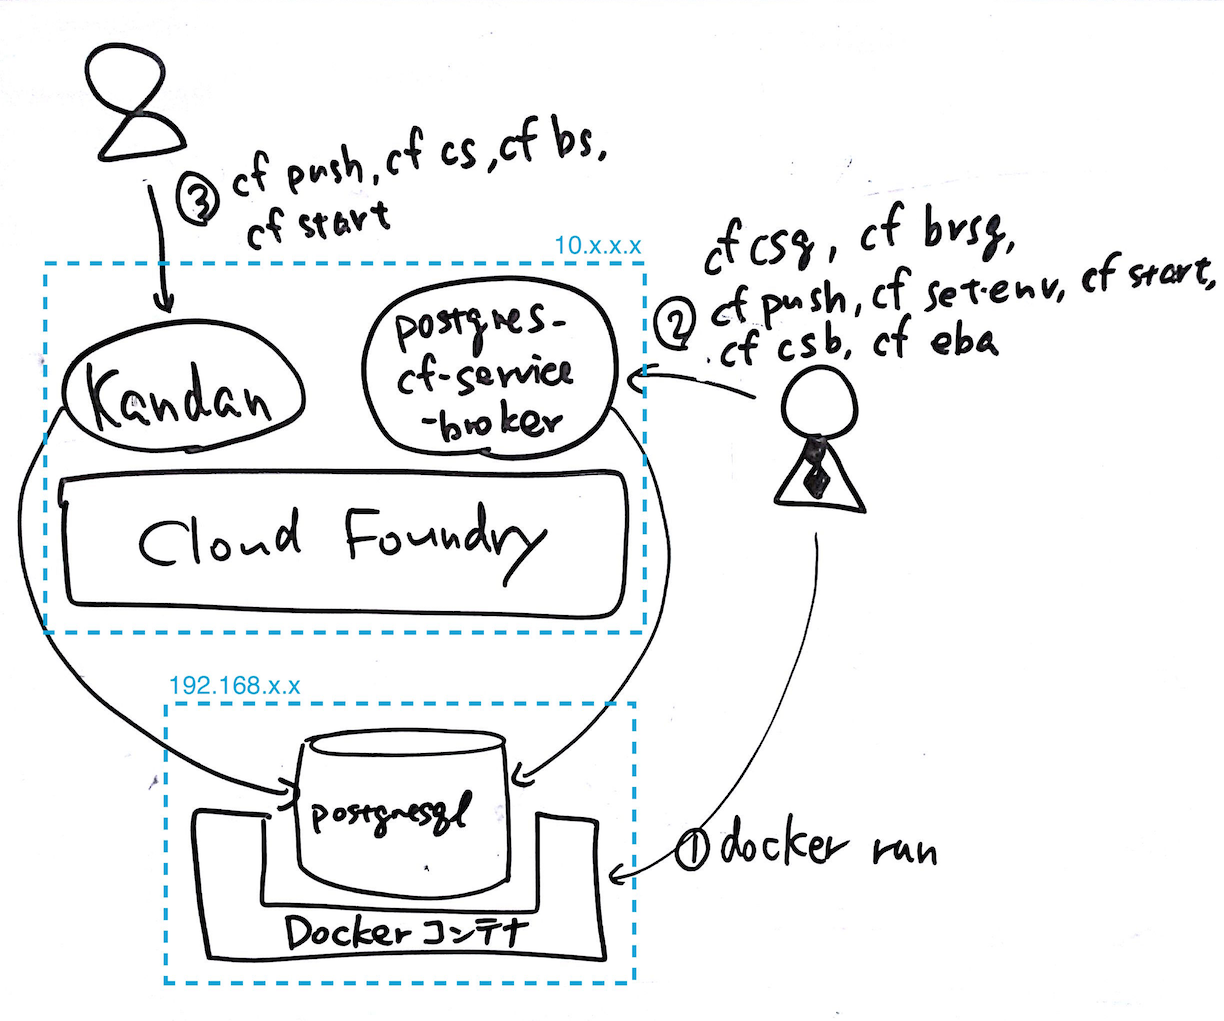 ③ cf push, cf cs, cf bs,
cf start
10.x.x.x
cf csg, cf brsg,
② cf push, cf set-env, cf start,
cf csb, cf eba
Kandan
postgres-
cf-service
-broker
Cloud Foundry
192.168.x.x
postgresql
① docker run
Dockerコンテナ